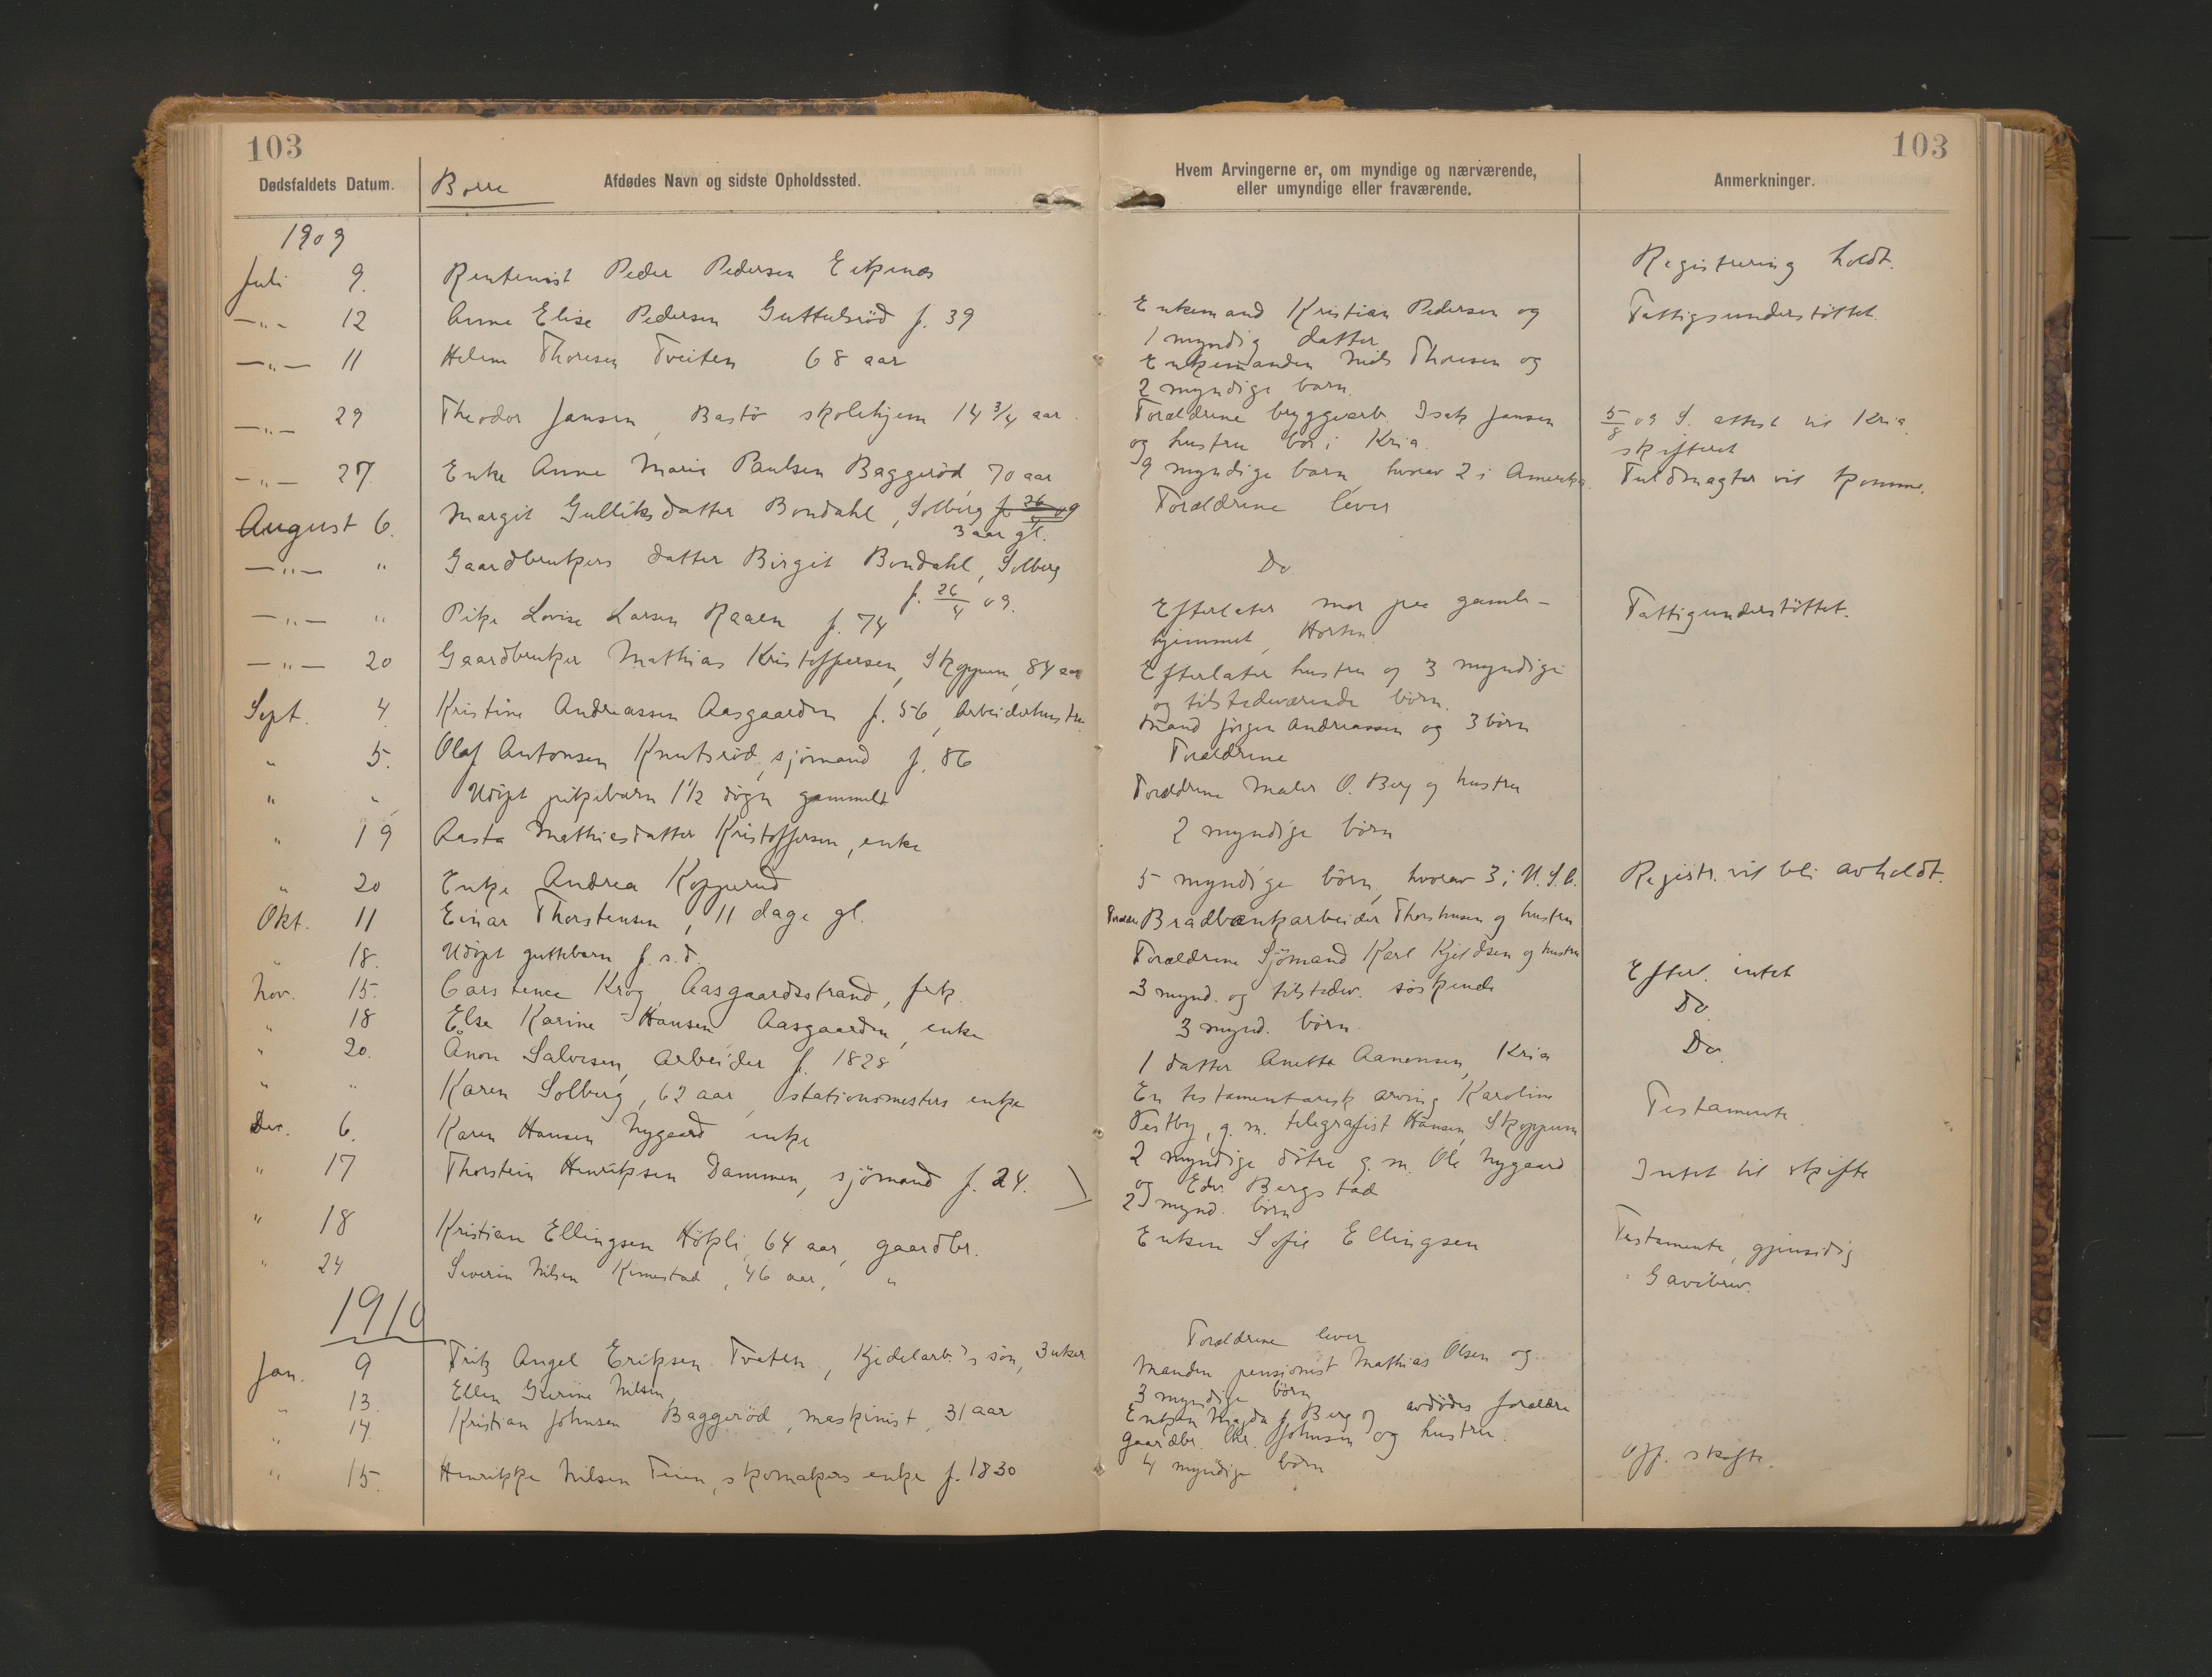 103
Dødsfaldets Datum.
Borre
Afdødes Navn og sidste Opholdssted.
1909
Juli 9. Rentenist Peder Pedersen Eikenes
—"— 12 Anne Elise Pedersen Guttulsröd f. 39
—"— 11 Helene Thoresen Tveiten 68 aar
—"— 29 Theodor Jansen, Bastö skolehjem 14 3/4 aar.
—"— 27. Enke Anne Marie Paulsen Baggeröd, 70 aar
August 6. Margit Gulliksdatter Bondahl, Solberg f. 26/4 09
3 aar gl.
—"— " Gaardbrukers datter Birgit Bondahl, Solberg
f. 26/4 09.
—"— " Pike Lovise Larsen Raaen f. 74
—"— 20 Gaardbruker Mathias Kristoffersen, Skoppum, 84 aar
Sept. 4. Kristine Andreassen Aasgaarden f. 56, Arbeiderhustru
" 5. Olaf Antonsen Knutsröd, sjömand f. 86
" " Udöpt pikebarn 1 1/2 dögn gammelt
" 19 Aasta Mathiesdatter Kristoffersen, enke
" 20 Enke Andrea Kopperud
Okt. 11 Einar Thorstensen, 11 dage gl.
" 18. Udöpt guttebarn f. s. d.
Nov. 15. Carstence Krog, Aasgaardsstrand, frk.
" 18 Else Karine Hansen Aasgaarden, enke
" 20. Ånon Salvesen, arbeider f. 1828
" " Karen Solberg, 62 aar, stationsmesters enke
Dec. 6. Karen Hansen Nygaard enke
" 17 Thorstein Henriksen Dammen, sjömand f. 24.
" 18 Kristian Ellingsen Hökli, 64 aar, gaardbr.
" 24 Severin Nilsen Kimestad, 46 aar, "
1910
Jan. 9 Fritz Angel Eriksen Tveten, Kjedelarb.'s sön, 3 uker
" 13. Ellen Gurine Nilsen,
" 14. Kristian Johnsen Baggeröd, maskinist, 31 aar
" 15. Henrikke Nilsen Teien, skomakers enke f. 1830
103
Hvem Arvingerne er, om myndige og nærværende,
eller umyndige eller fraværende.
Anmerkninger.
Registrering holdt.
Enkemand Kristian Pedersen og
1 myndig datter
Fattigsunderstöttet.
Enkemanden Nils Thoresen og
2 myndige barn.
Forældrene bryggearb. Isak Jansen
og hustru bor i Kria.
5/8 09 S. attest til Kria
skifteret
9 myndige barn, hvorav 2 i Amerika.
Fuldmagter vil komme.
Forældrene lever
Do
Efterlater mor paa gamle-
hjemmet, Horten.
Fattigunderstöttet.
Efterlater hustru og 3 myndige
og tilstedeværende börn.
Mand Jörgen Andreassen og 3 börn
Forældrene
Forældrene Maler O. Berg og hustru
2 myndige börn
5 myndige börn, hvorav 3 i U.S.A.
Registr. vil bli avholdt.
Forældre Brædbænkarbeider Thorstensen og hustru
Forældrene Sjömand Karl Kjeldsen og hustru
3 mynd. og tilstedev. söskende
Efterl. intet
3 mynd. börn.
Do.
1 datter Anette Aanonsen, Kria
Do.
En testamentarisk arving Karoline
Testby, g. m. telegrafist Hansen, Skoppum
Testamente
2 myndige dötre g. m. Ole Nygaard
og Edv. Bergstad
Intet til skifte
2 mynd. börn
Enken Sofie Ellingsen
Testamente, gjensidig
Gavebrev.
Forældrene lever
Manden pensionist Mathias Olsen og
3 myndige börn
Enken Magda f. Berg og avdödes forældre
Gaardbr. Chr. Johnsen og hustru.
4 myndige börn
Off. skifte.